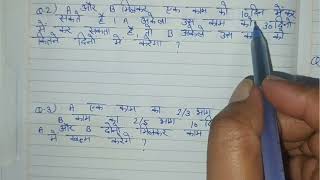 Q.2) A और B मिलकर एक काम को 10 दिन में कर
सकते हैं। A अकेला उस काम को 30 दिनों
में कर सकता है, तो B अकेले उस काम को
कितने दिनों में करेगा ?
Q.3) A एक काम का 2/3 भाग
B काम का 2/5 भाग 10
A और B दोनों मिलकर काम
में खत्म करेंगे ?